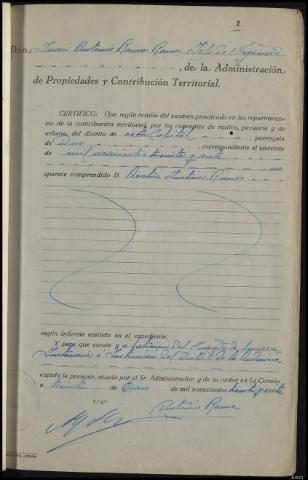 1
Don Juan Antonio Ramos Ramos, Jefe de Negociado
, de la Administración
de Propiedades y Contribución Territorial.
CERTIFICO: Que según resulta del examen practicado en los repartimien-
tos de la contribución territorial, por los conceptos de rústica, pecuaria y de
urbana, del distrito de esta Capital, parroquia
de idem, correspondiente al ejercicio
de mil novecientos treinta y siete no
aparece comprendido D. Faustino Ramos
según informe emitido en el expediente.
Y para que conste y a petición del Juzgado de primera
Instancia e Instrucción del Distrito de la Audiencia
expido la presente, visada por el Sr. Administrador, y de su orden en La Coruña
a treinta de Enero de mil novecientos treinta y siete
V.º B.º
Antonio Ramos